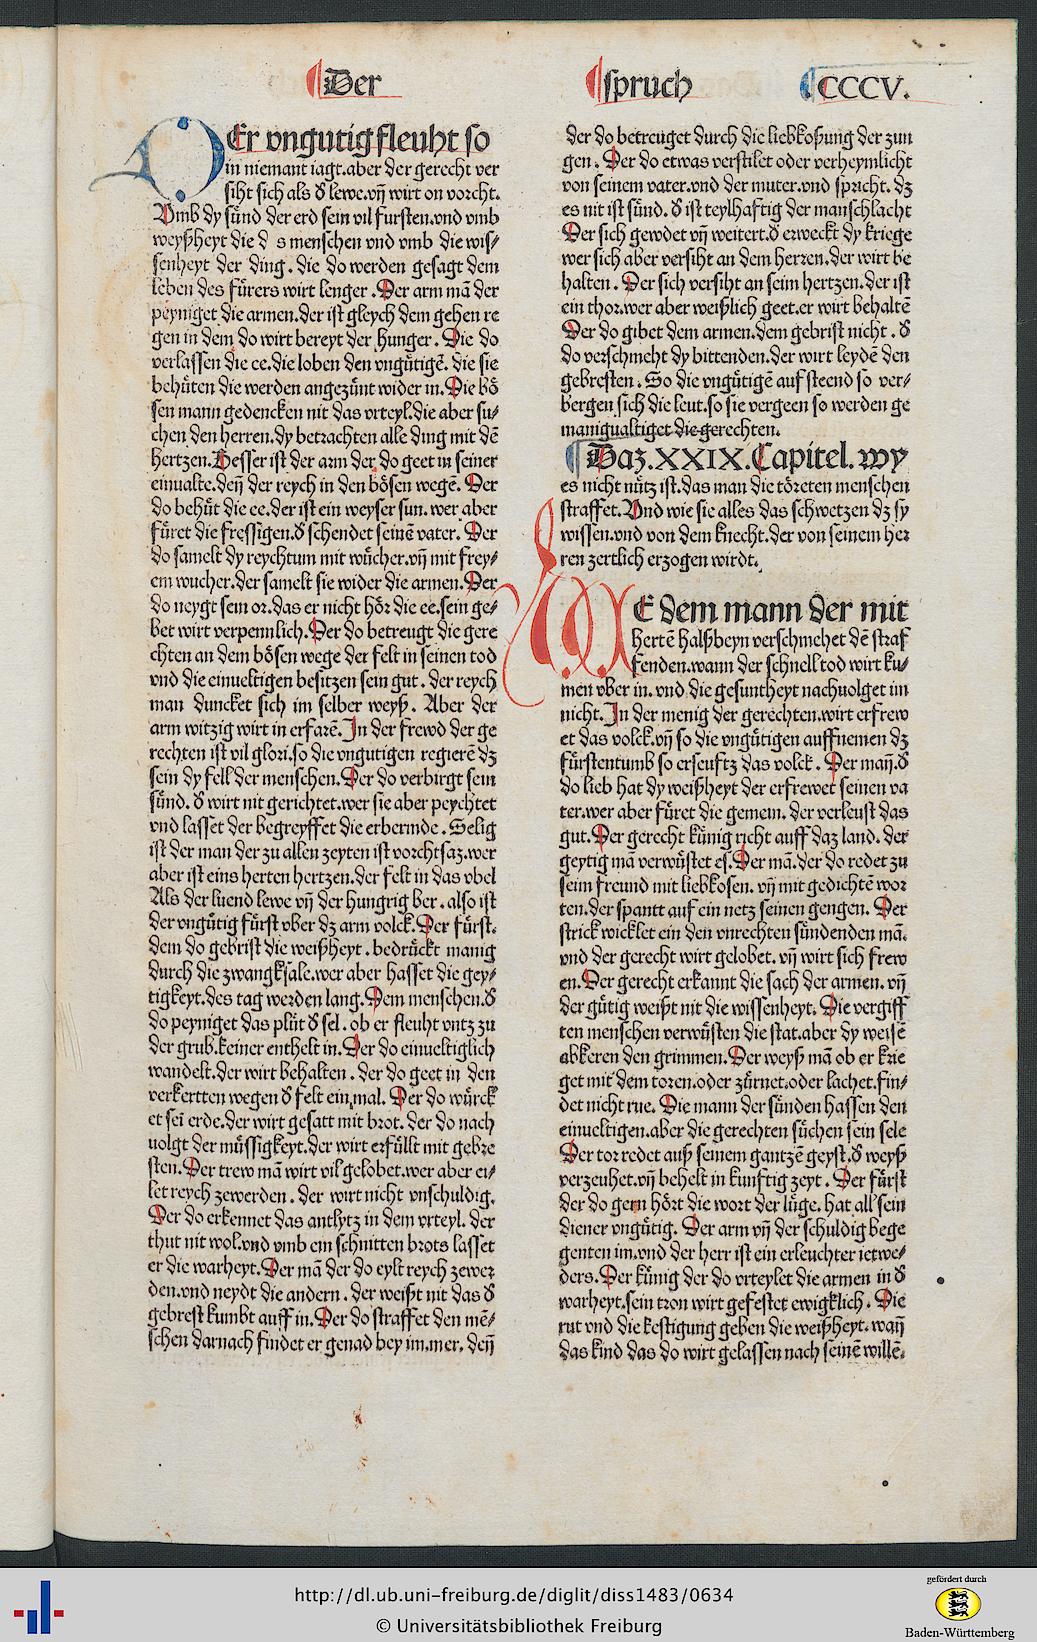 Der
spruch
CCCV.
DEr vngutig fleuht so
in niemant iagt.aber der gerecht ver
siht sich als d̕ lewe.vn̄ wirt on vorcht.
Vmb dy sůnd der erd sein vil fursten.vnd vmb
weyßheyt die d s menschen vnd vmb die wis/
senheyt der ding. die do werden gesagt dem
leben des fu̇rers wirt lenger. Der arm mā der
peyniget die armen.der ist gleych dem gehen re
gen in dem do wirt bereyt der hunger. Die do
verlassen die ee.die loben den vngůtigē. die sie
behůten die werden angezůnt wider in. Die bö
sen mann gedencken nit das vrteyl.die aber su/
chen den herren.dy betrachten alle ding mit dē
hertzen. Besser ist der arm der do geet in seiner
einualte.den̄ der reych in den bösen wegē. Der
do behůt die ee.der ist ein weyser sun. wer aber
fůret die fressigen.d̕ schendet seinē vater. Der
do samelt dy reychtum mit wůcher.vn̄ mit frey/
em wucher.der samelt sie wider die armen. Der
do neygt sein or.das er nicht hör die ee.sein ge/
bet wirt verpennlich. Der do betreugt die gere
chten an dem bösen wege der felt in seinen tod
vnd die einueltigen besitzen sein gut. der reych
man duncket sich im selber weyß. Aber der
arm witzig wirt in erfarē. In der frewd der ge
rechten ist vil glori.so die vngutigen regierē dz
sein dy fell der menschen. Der do verbirgt sein
sůnd. d̕ wirt nit gerichtet.wer sie aber peychtet
vnd lasset der begreyffet die erbermde. Selig
ist der man der zu allen zeyten ist vorchtsaz.wer
aber ist eins herten hertzen.der felt in das vbel
Als der luend lewe vn̄ der hungrig ber. also ist
der vngůtig fůrst vber dz arm volck. Der fůrst.
dem do gebrist die weißheyt. bedrůckt manig
durch die zwangksale.wer aber hasset die gey/
tigkeyt.des tag werden lang. Dem menschen.d̕
do peyniget das plůt d̕ sel. ob er fleuht vntz zu
der grub.keiner enthelt in. Der do einueltiglich
wandelt.der wirt behalten. der do geet in den
verkertten wegen d̕ felt ein mal. Der do wůrck
et sei erde.der wirt gesatt mit brot. der do nach
uolgt der můssigkeyt.der wirt erfůllt mit gebre
sten. Der trew mā wirt vil gelobet.wer aber ei/
let reych zewerden. der wirt nicht vnschuldig.
Der do erkennet das antlytz in dem vrteyl. der
thut nit wol.vnd vmb ein schnitten brots lasset
er die warheyt. Der mā der do eylt reych zewer
den.vnd neydt die andern. der weißt nit das d̕
gebrest kumbt auff in. Der do straffet den mē/
schen darnach findet er genad bey im.mer. den̄
der do betreuget durch die liebkoßung der zun
gen. Der do etwas verstilet oder verheymlicht
von seinem vater.vnd der muter.vnd spricht. dz
es nit ist sůnd. d̕ ist teylhaftig der manschlacht
Der sich gewdet vn̄ weitert.d̕ erweckt dy kriege
wer sich aber versiht an dem herren.der wirt be
halten. Der sich versiht an seim hertzen.der ist
ein thor.wer aber weißlich geet.er wirt behaltē
Der do gibet dem armen.dem gebrist nicht. d̕
do verschmeht dy bittenden.der wirt leydē den
gebresten. So die vngůtigē auf steend so ver/
bergen sich die leut.so sie vergeen so werden ge
manigualtiget die gerechten.
Daz.XXIX.Capitel. wy
es nicht nůtz ist.das man die töreten menschen
straffet. Vnd wie sie alles das schwetzen dz sy
wissen.vnd von dem knecht.der von seinem her
ren zertlich erzogen wirdt.
WE dem mann der mit
hertē halßbeyn verschmehet dē straf
fenden.wann der schnell tod wirt ku/
men vber in. vnd die gesuntheyt nachuolget im
nicht. In der menig der gerechten.wirt erfrew
et das volck.vn̄ so die vngůtigen auffnemen dz
fůrstentumb so erseuftz das volck. Der man̄.d̕
do lieb hat dy weißheyt der erfrewet seinen va
ter.wer aber fůret die gemein. der verleust das
gut. Der gerecht kůnig richt auff daz land. der
geytig mā verwůstet es. Der mā.der do redet zu
seim freund mit liebkosen. vn̄ mit gedichtē wor
ten.der spantt auf ein netz seinen gengen. Der
strick wicklet ein den vnrechten sůndenden mā.
vnd der gerecht wirt gelobet. vn̄ wirt sich frew
en. Der gerecht erkannt die sach der armen. vn̄
der gůtig weißt nit die wissenheyt. Die vergiff
ten menschen verwůsten die stat.aber dy weisē
abkeren den grimmen. Der weyß mā ob er krie
get mit dem toren.oder zůrnet.oder lachet.fin/
det nicht rue. Die mann der sůnden hassen den
einueltigen.aber die gerechten sůchen sein sele
Der tor redet auß seinem gantzē geyst.d̕ weyß
verzeuhet.vn̄ behelt in kunftig zeyt. Der fůrst
der do gern hört die wort der lůge. hat all sein
diener vngůtig. Der arm vn̄ der schuldig bege
genten im.vnd der herr ist ein erleuchter ietwe/
ders. Der kůnig der do vrteylet die armen in d̕
warheyt.sein tron wirt gefestet ewigklich. Die
rut vnd die kestigung geben die weißheyt. wan̄
das kind das do wirt gelassen nach seinē willē.
http://dl.ub.uni-freiburg.de/diglit/diss1483/0634
© Universitätsbibliothek Freiburg
gefördert durch
Baden-Württemberg